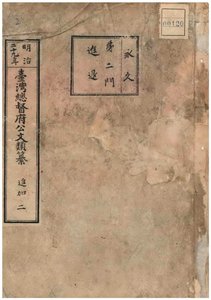 00120
永久
第二門
進退
明治
二十九年
臺灣總督府公文類纂
進加二